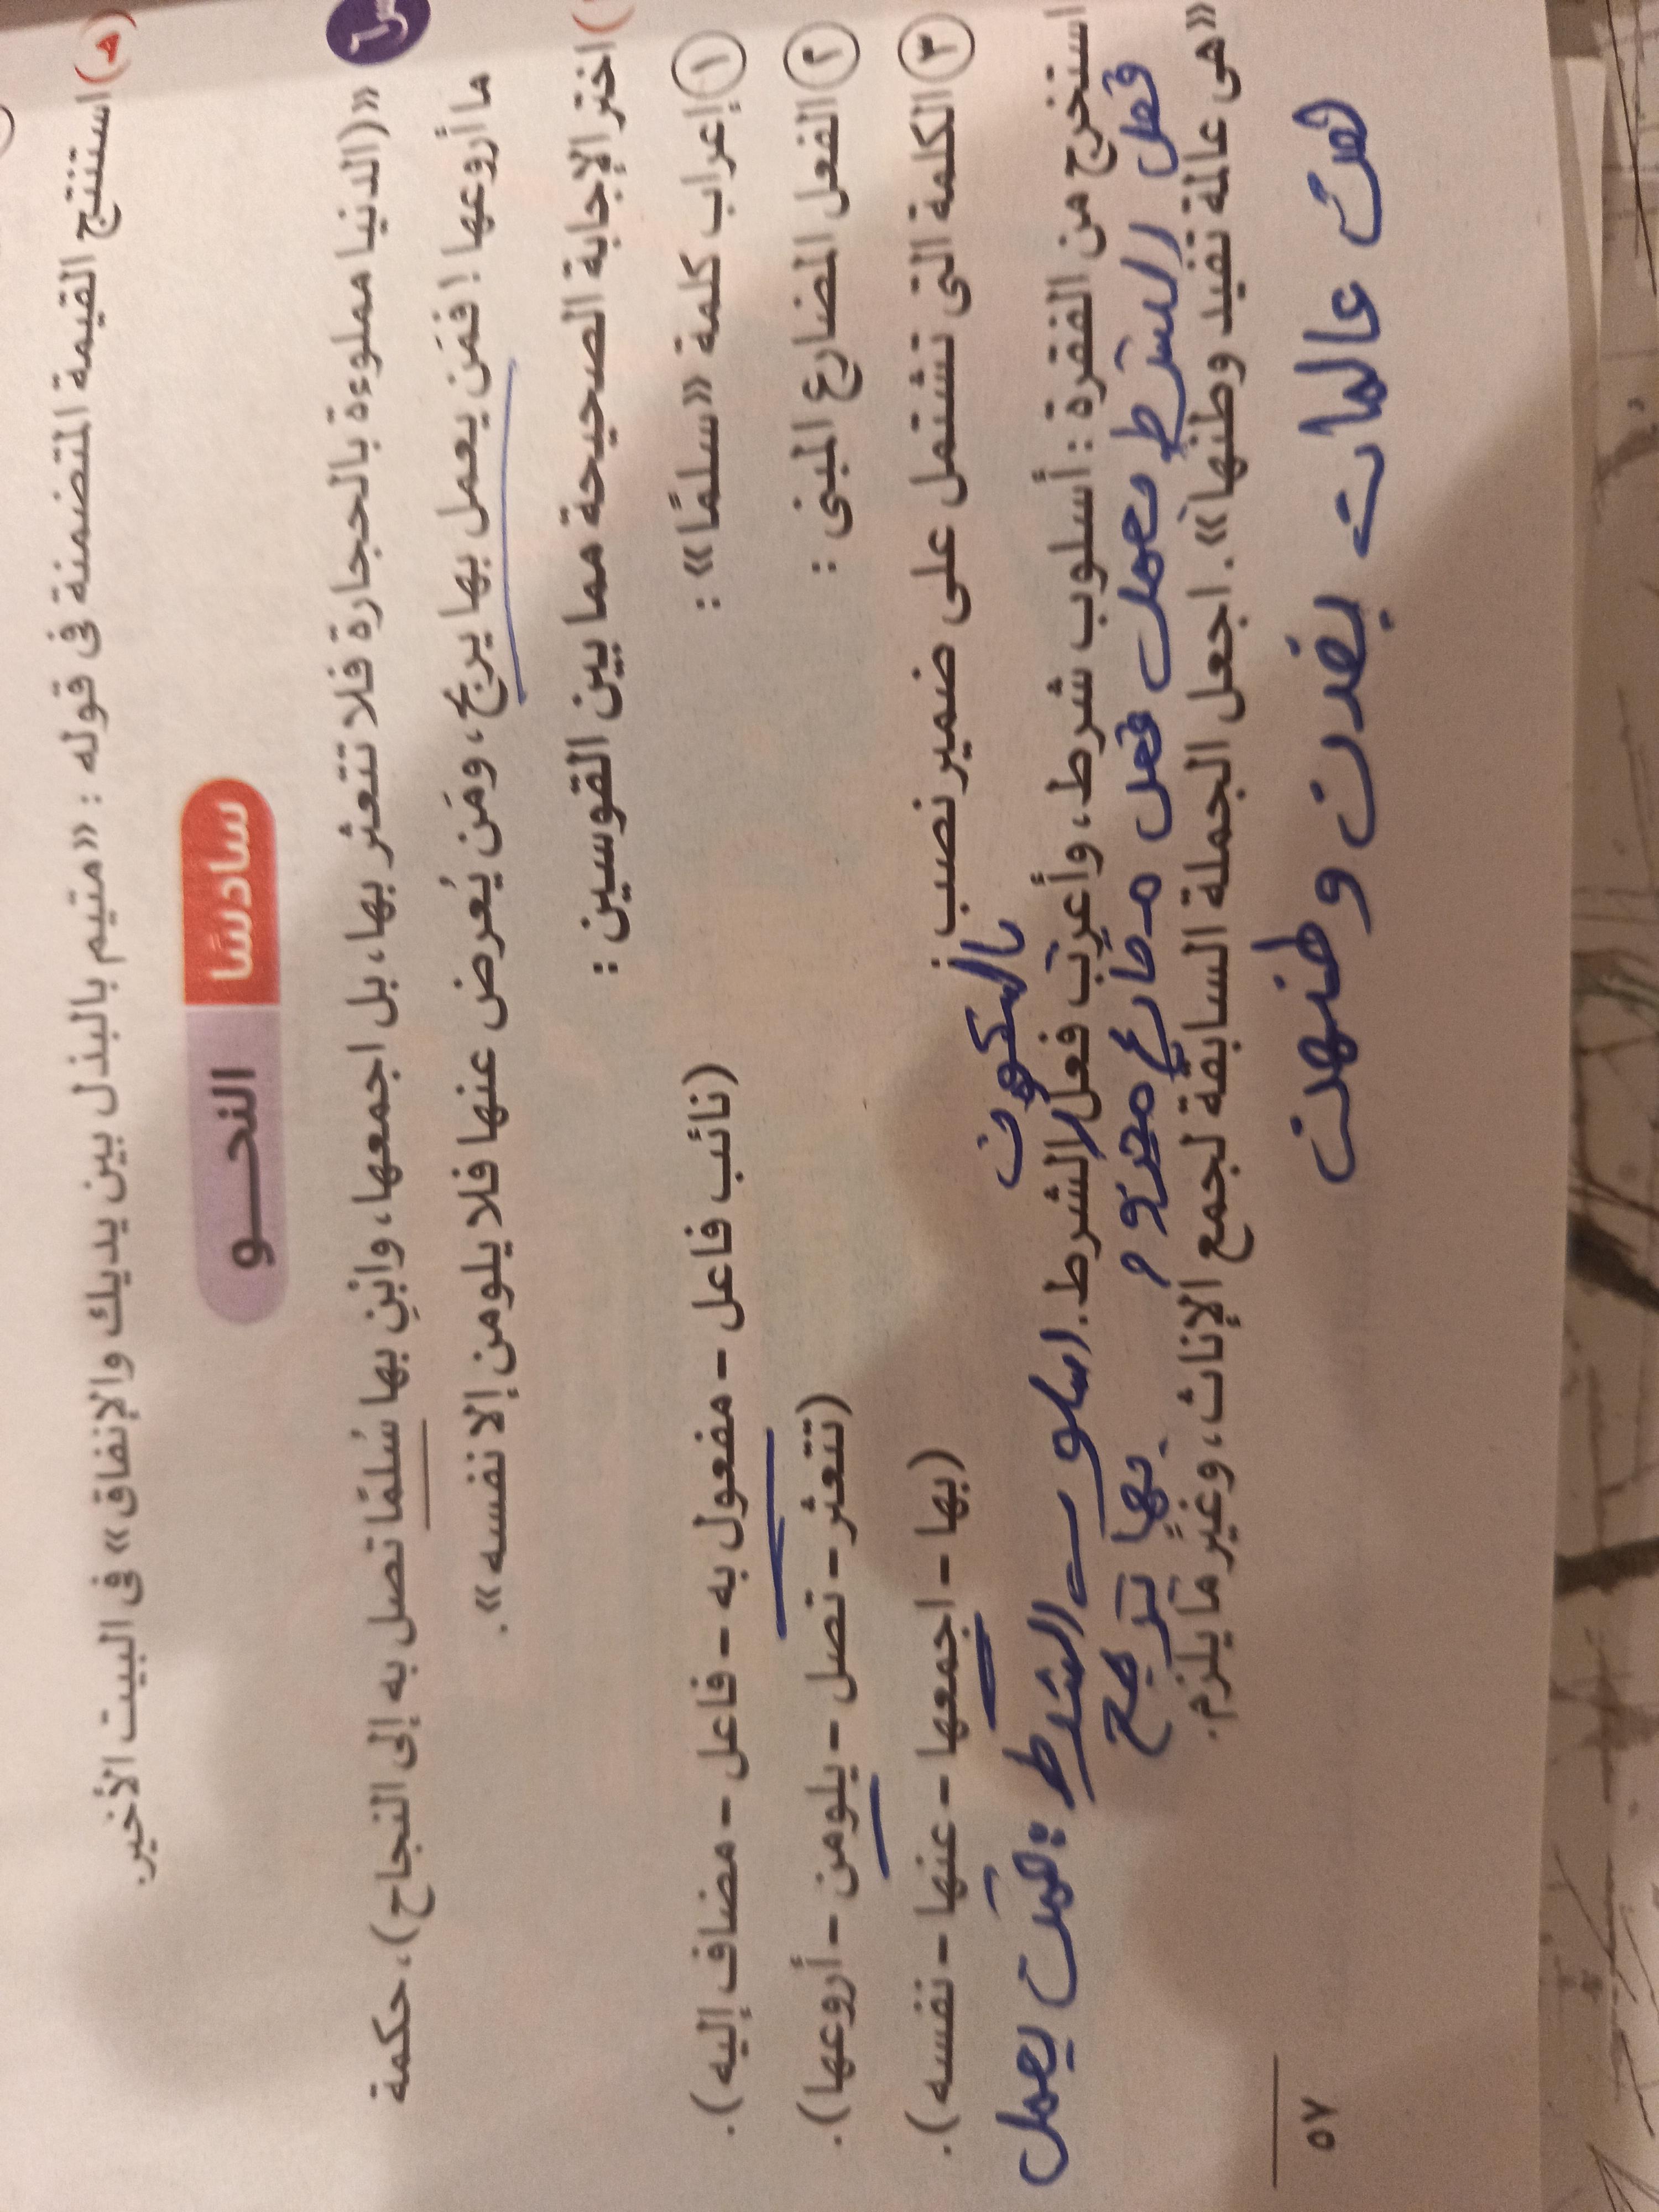 (هـ) استنتج القيمة المتضمنة فى قوله : «متيم بالبذل بين يديك والإنفاق» فى البيت الأخير.
سادسًا النحـــو
«(الدنيا مملوءة بالحجارة فلا تتعثر بها، بل اجمعها، وابْنِ بها سُلمًا تصل به إلى النجاح)، حكمة
ما أروعها ! فمَن يعمل بها يربح، ومَن يُعرض عنها فلا يلومن إلا نفسه».
) اختر الإجابة الصحيحة مما بين القوسين :
١ إعراب كلمة «سلمًا» : (نائب فاعل - مفعول به - فاعل - مضاف إليه).
٢ الفعل المضارع المبنى : (تتعثر - تصل - يلومن - أروعها).
٣ الكلمة التى تشتمل على ضمير نصب : (بها - اجمعها - عنها - نفسه).
بالسكون
استخرج من الفقرة : أسلوب شرط، وأعرب فعل الشرط. اسلوب الشرط : فمَن يعمل
فعل الشرط يعمل فعل مضارع مجزوم بها يربح
«هى عالمة تفيد وطنها». اجعل الجملة السابقة لجمع الإناث، وغير ما يلزم.
هن عالمات يفدن وطنهن
٥٧